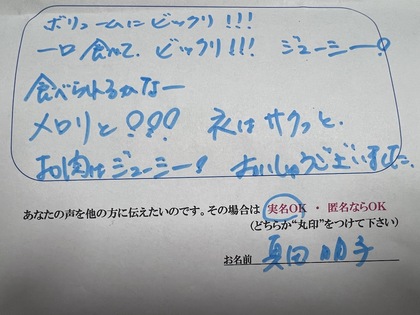 ボリュームにビックリ!!!
一口食べて、ビックリ!!! ジューシー!
食べられるかなー
メロリと!!! 衣はサクッと、
お肉はジューシー! おいしゅうございました。
あなたの声を他の方に伝えたいのです。その場合は 実名OK ・ 匿名ならOK
(どちらか“丸印”をつけて下さい)
お名前 真田 明子